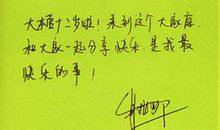 大本营十二岁啦！来到这个大家庭
和大家一起分享快乐，是我最
快乐的事！